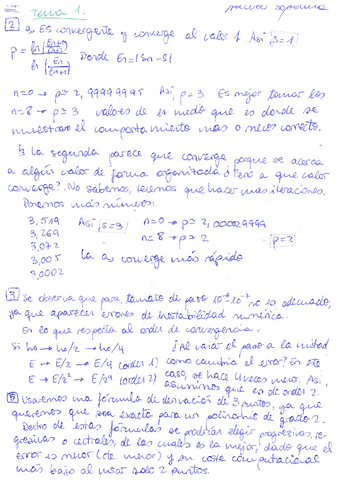 Tema 1.
2 a) Es convergente y converge al valor 1. Así, S=1
p = ln |En+1/En+2| / ln |En/En+1| Donde En=|Sn-S|
n=0 → p = 2,99999995 Así p=3. Es mejor tomar los
n=8 → p = 3 valores de en medio que es donde se
muestran el comportamiento más o menos correcto.
b) La segunda parece que converge porque se acerca
a algún valor de forma organizada, pero a que valor
converge? No sabemos, tenemos que hacer más iteraciones.
Ponemos más números:
3,519 Así, S=3 n=0 → p = 2,000029999
3,269 n=8 → p = 2 p=2
3,072
3,005 La a) converge más rápido
3,0002
3 Se observa que para tamaño de paso 10⁻⁶, 10⁻⁷ no es adecuado,
ya que aparecen errores de inestabilidad numérica.
En lo que respecta al orden de convergencia.
Si h0 → h0/2 → h0/4 ¿Al variar el paso a la mitad
E → E/2 → E/4 (orden 1) como cambia el error? En este
E → E/2² → E/2⁴ (orden 2) caso, se hace 4 veces menor. Así,
asumimos que es de orden 2.
5 Usaremos una fórmula de derivación de 3 puntos, ya que
queremos que sea exacta para un polinomio de grado 2.
Dentro de estas fórmulas se podrán elegir progresivas, re-
gresivas o centrales, de las cuales es la mejor, dado que el
error es menor (cte. menor) y su coste computacional
más bajo al usar solo 2 puntos.